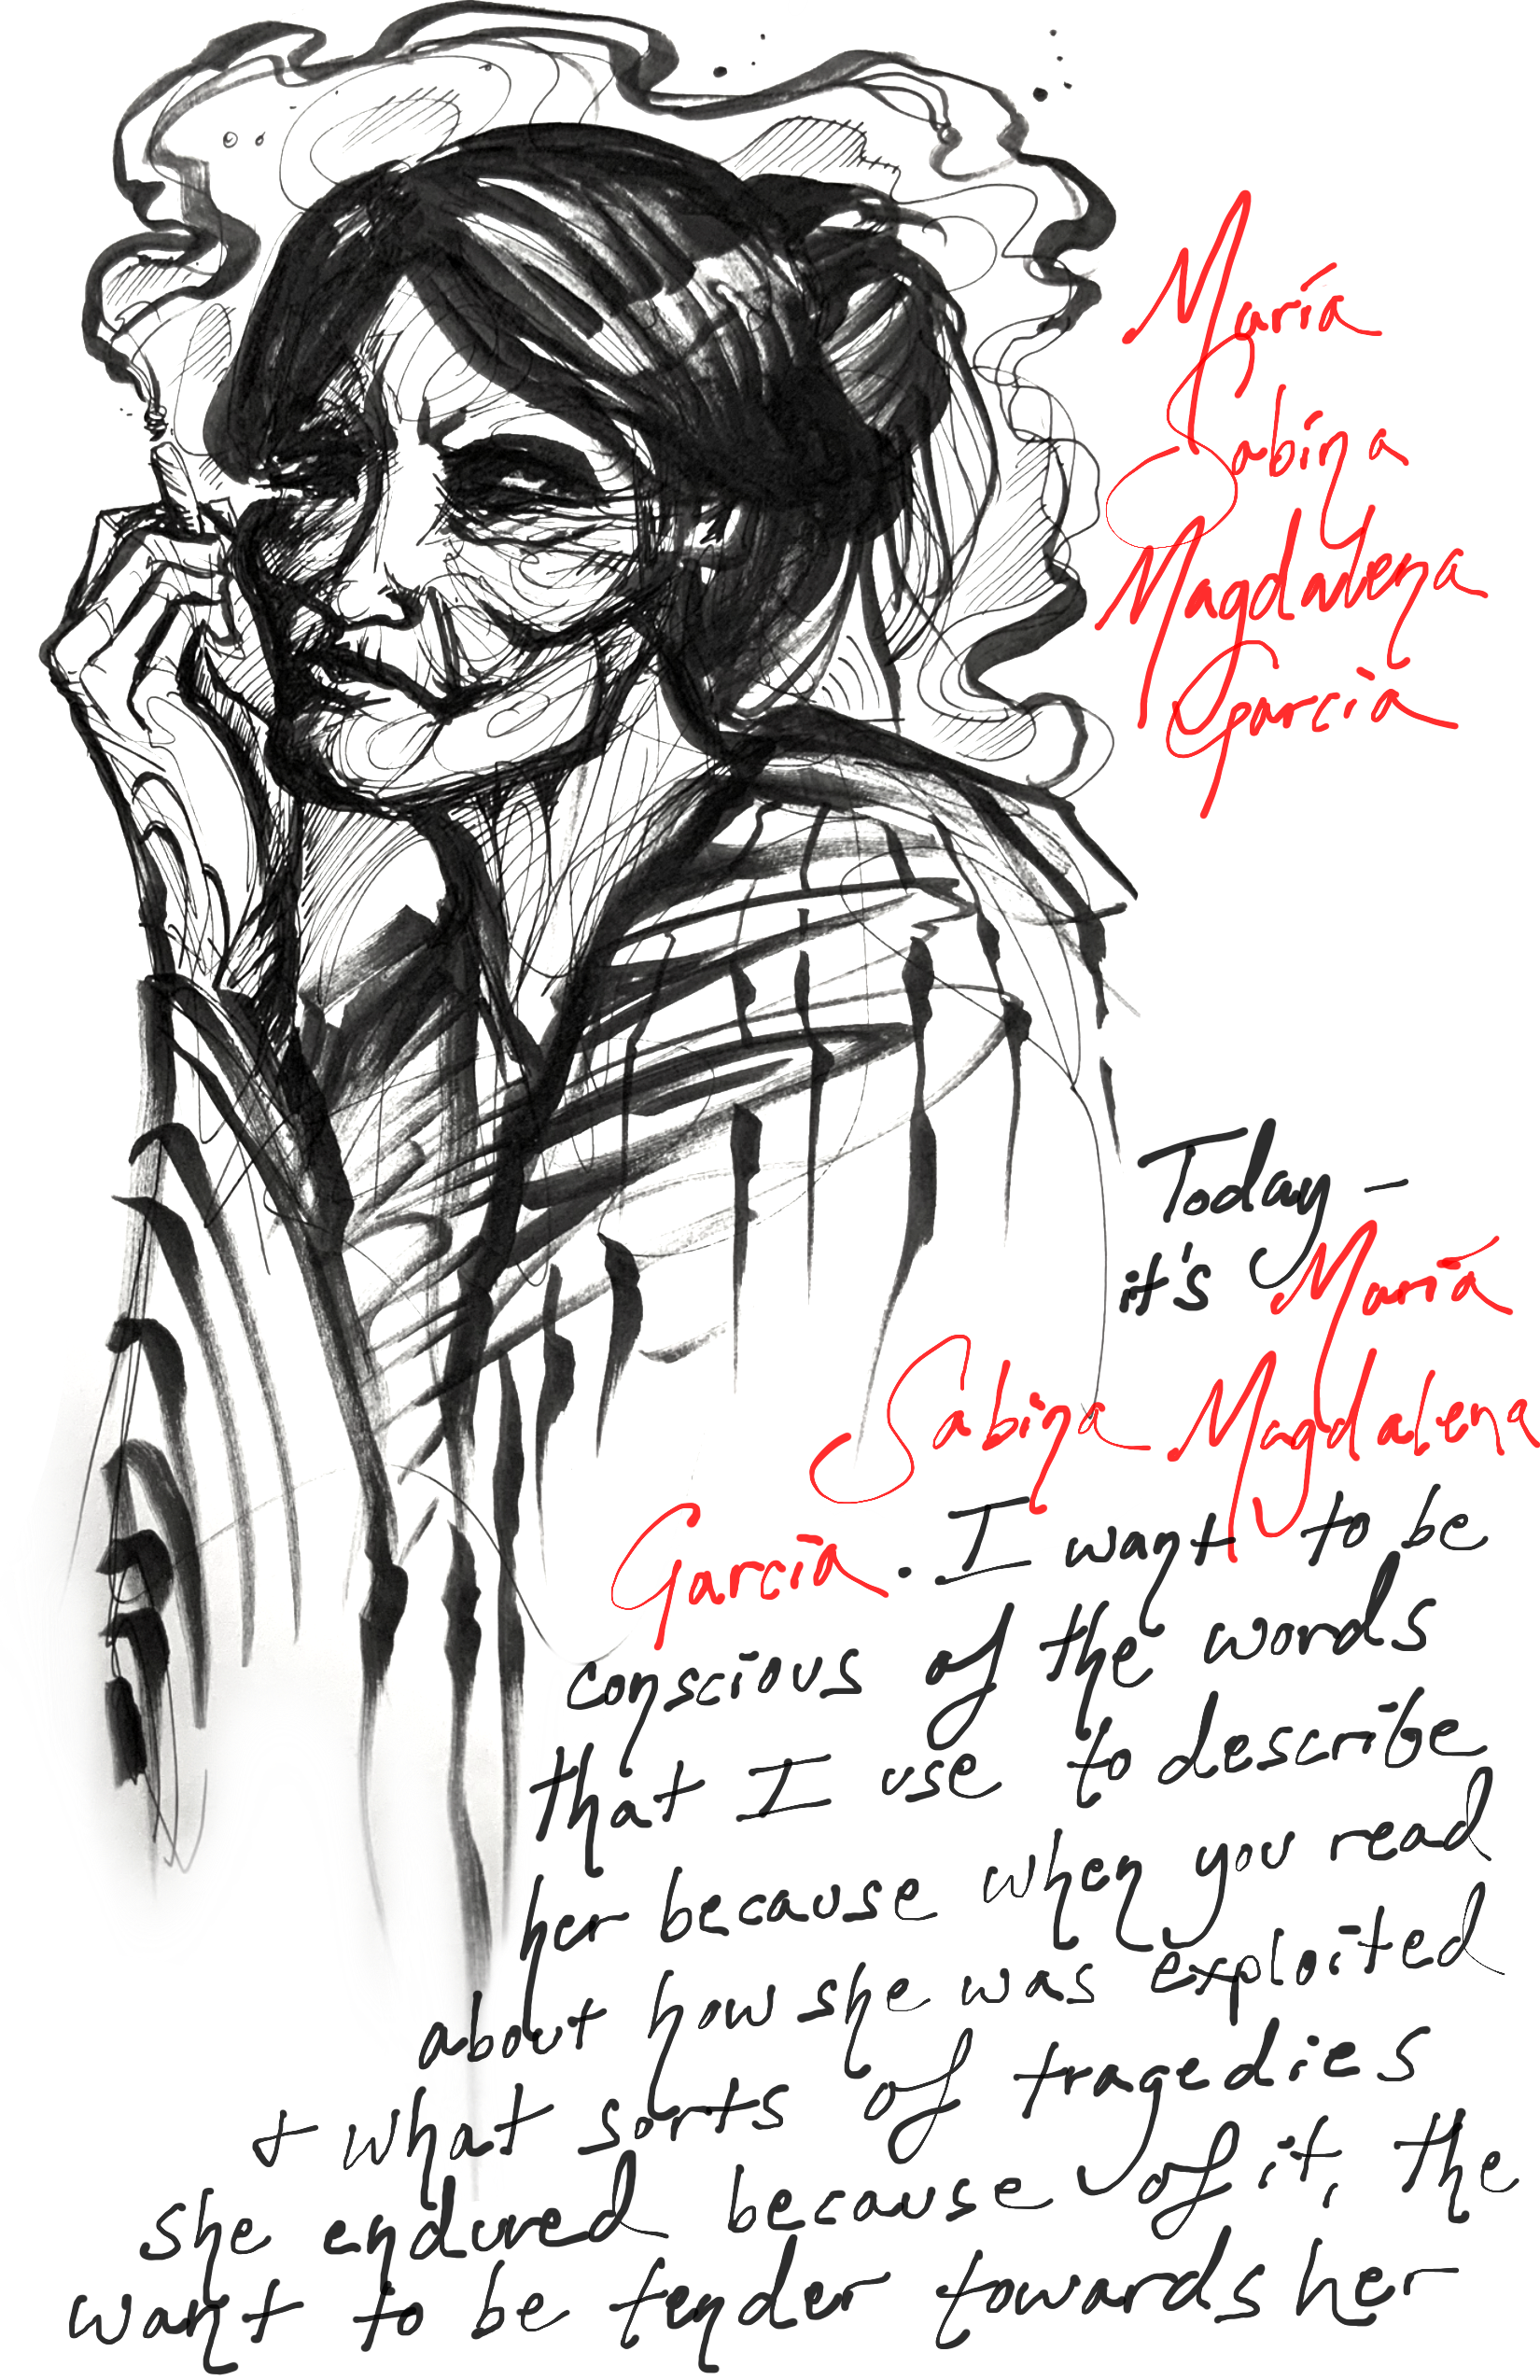 María
Sabina
Magdalena
García
Today —
it's María
Sabina Magdalena
García. I want to be
conscious of the words
that I use to describe
her because when you read
about how she was exploited
+ what sorts of tragedies
she endured because of it, the
want to be tender towards her